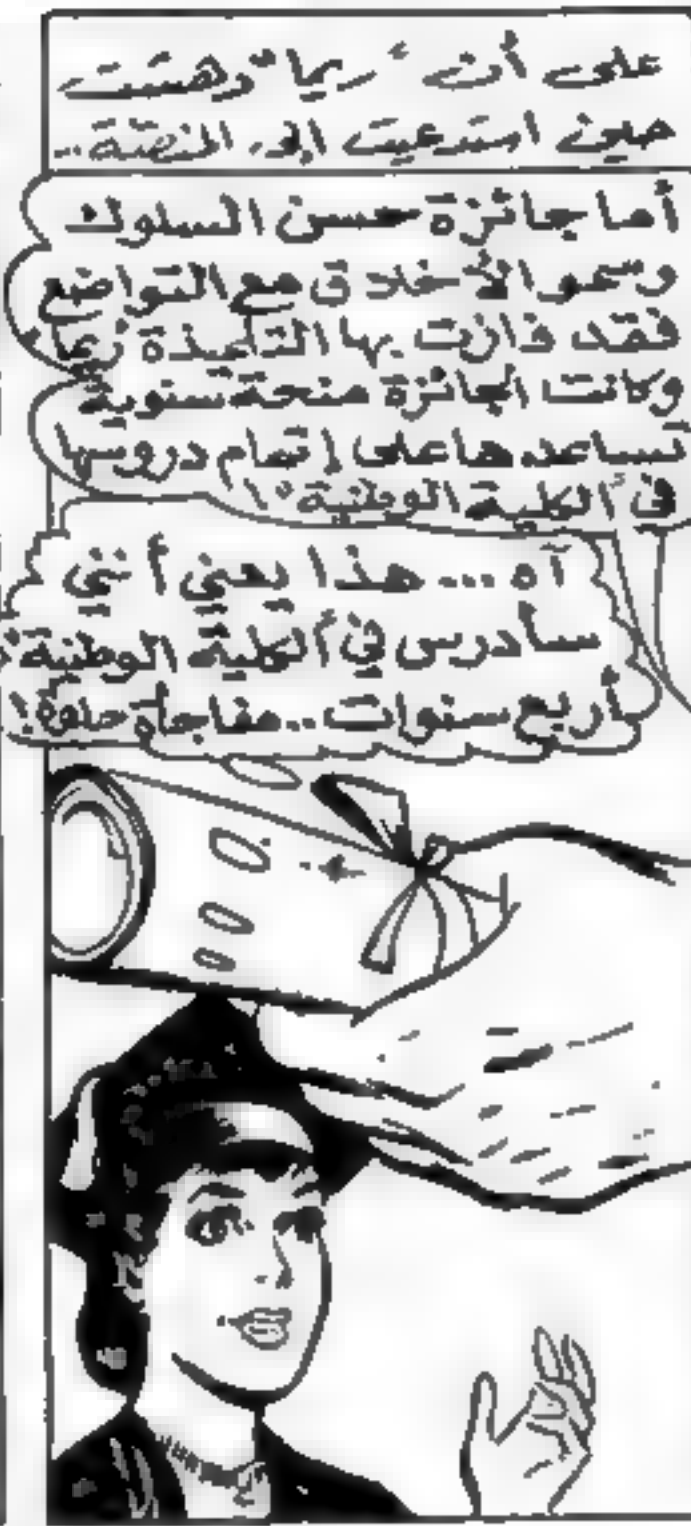 على أن "ريما" دهشت
حين استدعيت إلى المنصّة..
أما جائزة حسن السلوك
وسمو الأخلاق مع التواضع
فقد فازت بها التلميذة ريما
وكانت الجائزة منحة سنوية
تساعدها على إتمام دروسها
في "الكلية الوطنية"!
آه ... هذا يعني أنني
سأدرس في "الكلية الوطنية"
أربع سنوات.. مفاجأة حلوة!